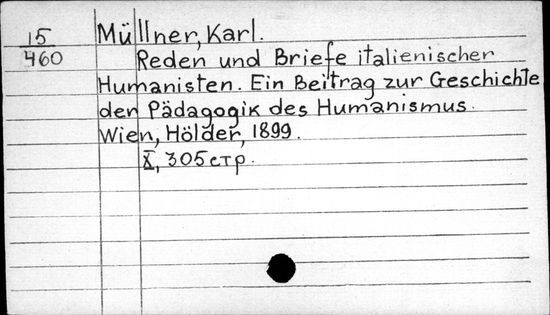 15
460
Müllner, Karl.
Reden und Briefe italienischer
Humanisten. Ein Beitrag zur Geschichte
der Pädagogik des Humanismus.
Wien, Hölder, 1899.
X, 305 стр.